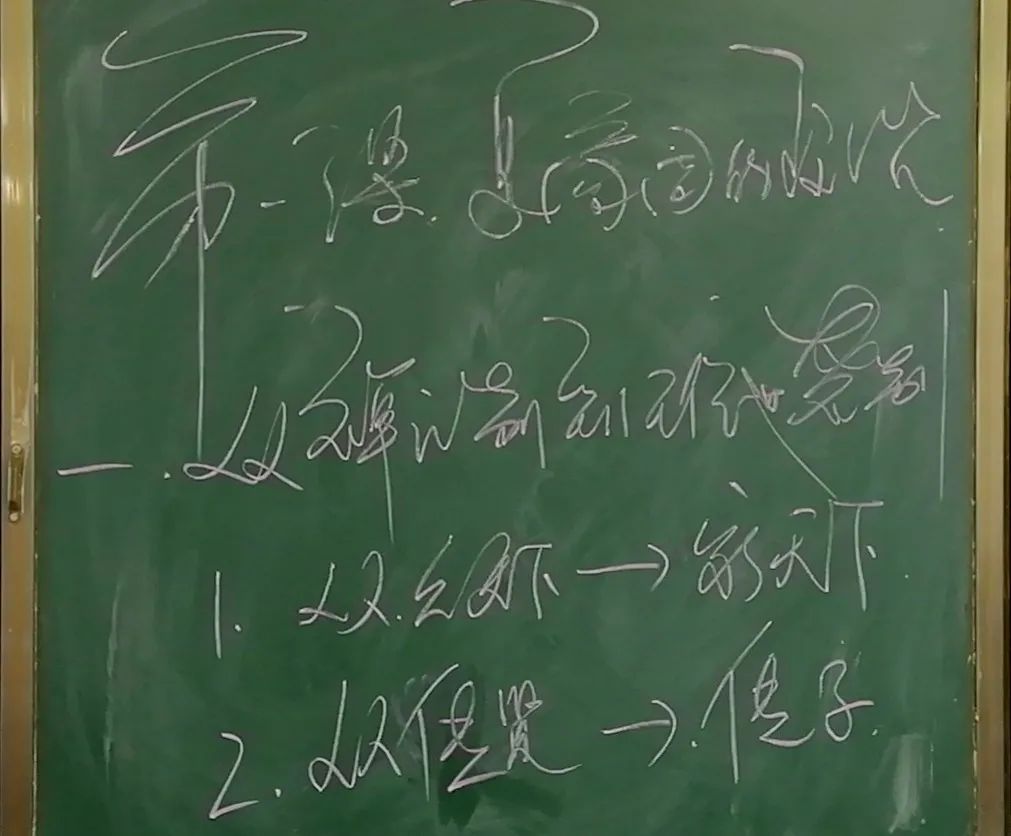 第一课. 夏商周的政治
一. 从禅让制到王位世袭制
1. 从公天下→家天下.
2. 从传贤→传子.